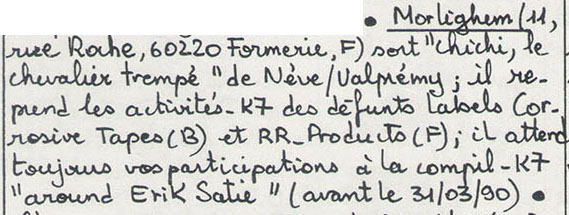 • Morlighem (11,
rue Rohe, 60220 Formerie, F) sort "chichi, le
chevalier trempé" de Nève/Valprémy ; il re-
prend les activités-K7 des défunts labels Cor-
rosive Tapes (B) et RR-Products (F) ; il attend
toujours vos participations à la compil-K7
"around Erik Satie" (avant le 31/03/90) •